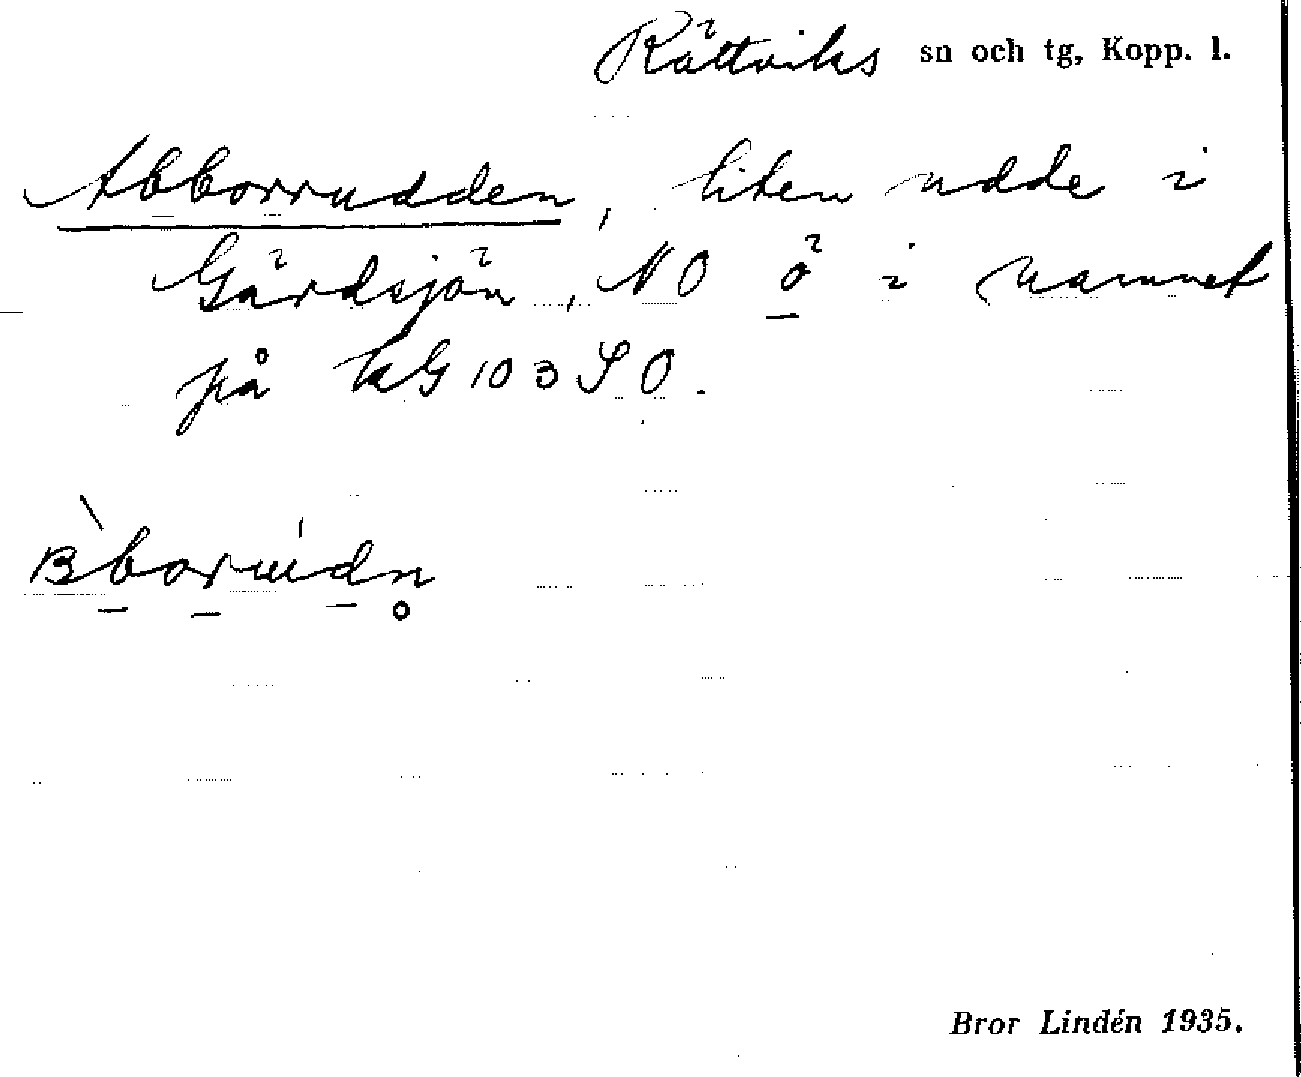 Rättviks sn och tg, Kopp. l.
Abborrudden, liten udde i
Gärdsjön, NO ö i namnet
på kG 103 SO.
Bror Lindén 1935.